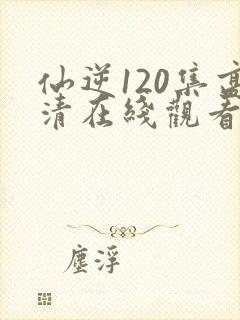 仙逆120集高
清在綫觀看
塵浮